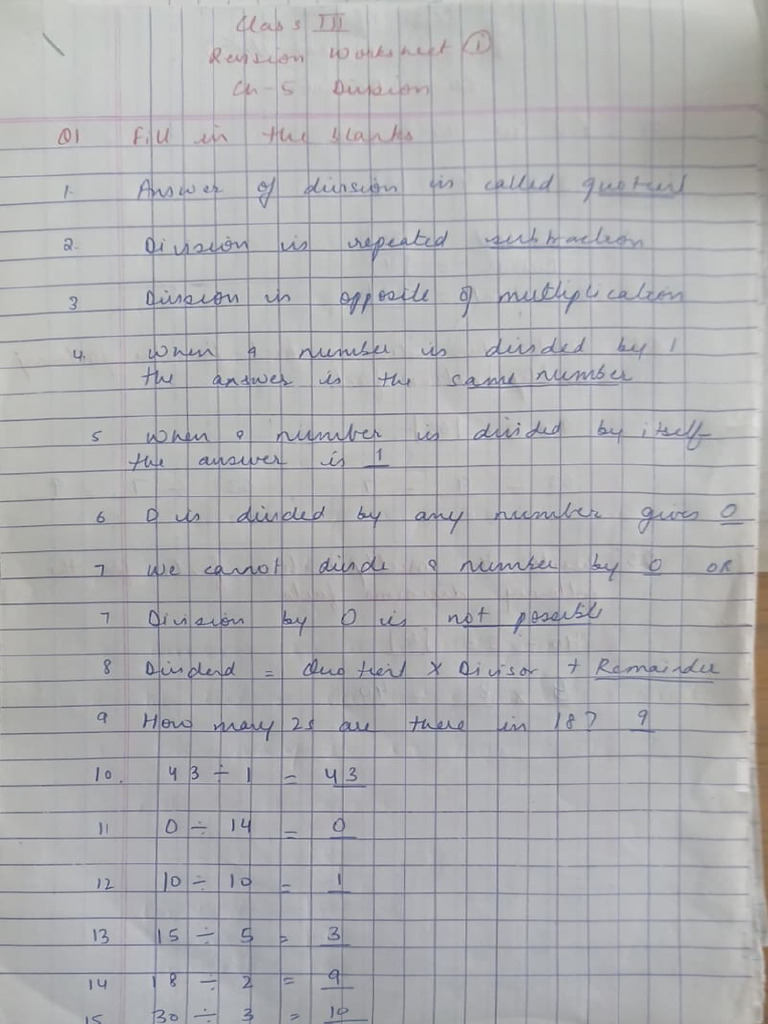 Class III
Revision Worksheet ①
Ch-5 Division
Q1 Fill in the blanks
1. Answer of division is called quotient
2. Division is repeated subtraction
3 Division is opposite of multiplication
4. When a number is divided by 1
the answer is the same number
5 When a number is divided by itself
the answer is 1
6 0 is divided by any number gives 0
7 We cannot divide a number by 0 OR
7 Division by 0 is not possible
8 Dividend = Quotient × Divisor + Remainder
9 How many 2s are there in 18? 9
10. 43 ÷ 1 = 43
11 0 ÷ 14 = 0
12 10 ÷ 10 = 1
13 15 ÷ 5 = 3
14 18 ÷ 2 = 9
15 30 ÷ 3 = 10